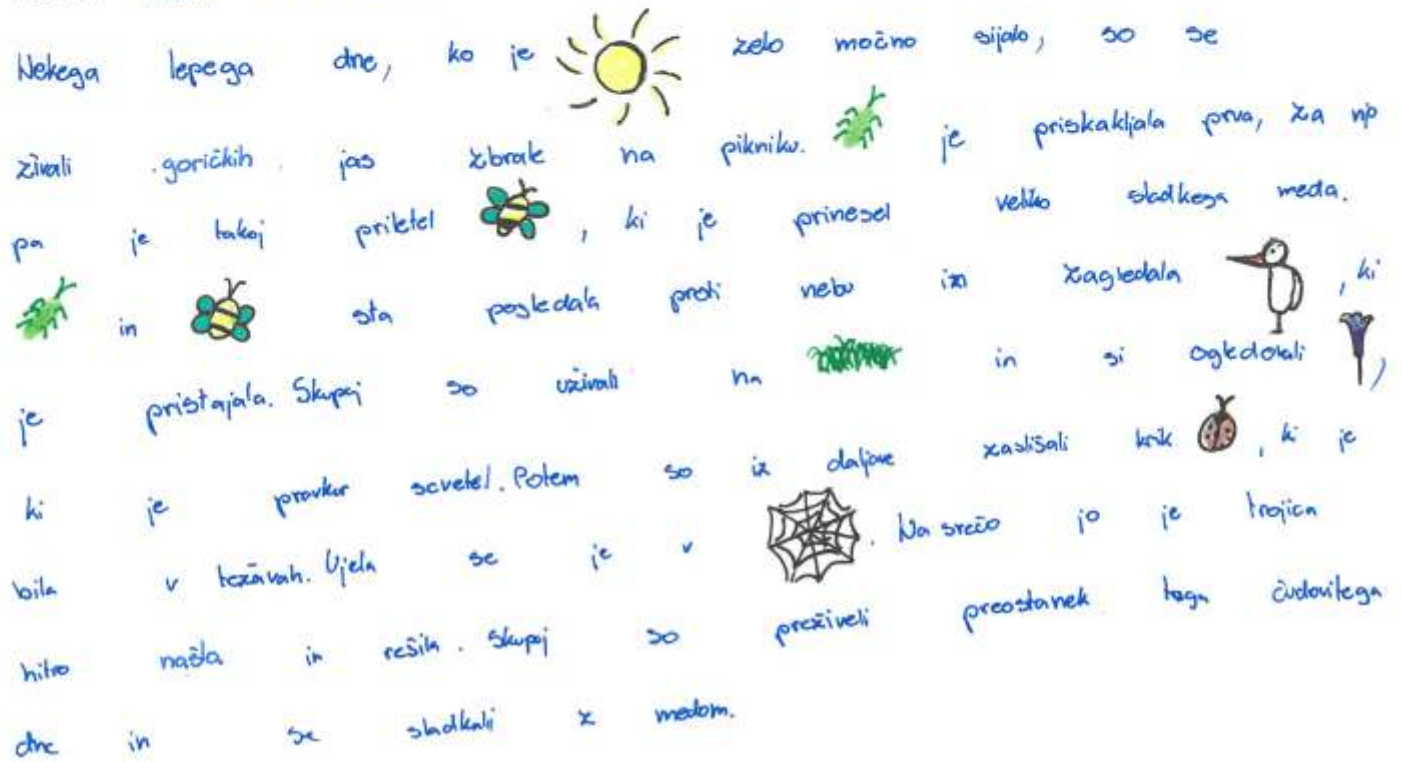 Nekega lepega dne, ko je zelo močno sijalo, so se
živali goričkih jas zbrale na pikniku. je priskakljala prva, za njo
pa je takoj priletel , ki je prinesel veliko sladkega meda.
in sta pogledala proti nebu in zagledala , ki
je pristajala. Skupaj so uživali na in si ogledovali ,
ki je pravkar scvetel. Potem so iz daljave zaslišali krik , ki je
bila v težavah. Ujela se je v . Na srečo jo je trojica
hitro našla in rešila. Skupaj so preživeli preostanek tega čudovitega
dne in se sladkali z medom.